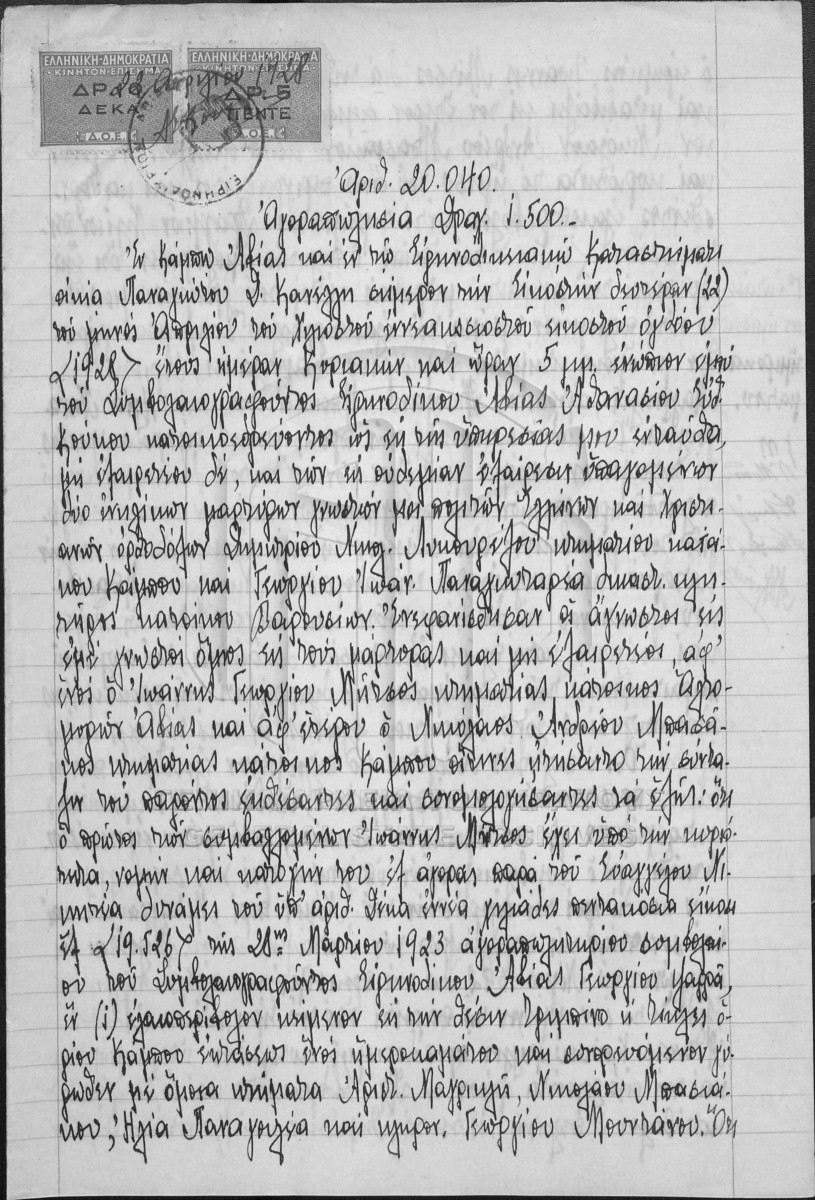 ΕΛΛΗΝΙΚΗ·ΔΗΜΟΚΡΑΤΙΑ ΕΛΛΗΝΙΚΗ·ΔΗΜΟΚΡΑΤΙΑ
·ΚΙΝΗΤΟΝ·ΕΠΙΣΗΜΑ· ·ΚΙΝΗΤΟΝ·ΕΠΙΣΗΜΑ·
ΔΡ. 10 ΔΡ. 5
ΔΕΚΑ ΠΕΝΤΕ
Δ.Ο.Ε. Δ.Ο.Ε.
22 Απριλίου 1928
Ἀριθ. 20.040.
Ἀγοραπωλησία Δραχ. 1.500.-
Ἐν Κάμπῳ Ἀβίας καὶ ἐν τῷ Εἰρηνοδικειακῷ Καταστήματι
οἰκίᾳ Παναγιώτου Δ. Κανέλλη σήμερον τὴν Εἰκοστὴν δευτέραν (22)
τοῦ μηνὸς Ἀπριλίου τοῦ χιλιοστοῦ ἐννεακοσιοστοῦ εἰκοστοῦ ὀγδόου
(1928) ἔτους ἡμέραν Κυριακὴν καὶ ὥραν 5 μμ. ἐνώπιον ἐμοῦ
τοῦ Συμβολαιογραφοῦντος Εἰρηνοδίκου Ἀβίας Ἀθανασίου
Κούκου κατοικοεδρεύοντος ὡς ἐκ τῆς ὑπηρεσίας μου ἐνταῦθα,
μὴ ἐξαιρετέου δέ, καὶ τῶν εἰς οὐδεμίαν ἐξαίρεσιν ὑπαγομένων
δύο ἐνηλίκων μαρτύρων γνωστῶν μοι πολιτῶν Ἑλλήνων καὶ Χριστι-
ανῶν ὀρθοδόξων Δημητρίου Νικ. Λυκουρέζου κτηματίου κατοί-
κου Κάμπου καὶ Γεωργίου Ἰωάν. Παναγιωταρέα δικαστ. κλη-
τῆρος κατοίκου Βαρουσίων. Ἐνεφανίσθησαν οἱ ἄγνωστοι εἰς
ἐμὲ γνωστοὶ ὅμως εἰς τοὺς μάρτυρας καὶ μὴ ἐξαιρετέοι, ἀφ'
ἑνὸς ὁ Ἰωάννης Γεωργίου Μῆτσος κτηματίας κάτοικος
Ἀβίας καὶ ἀφ' ἑτέρου ὁ Νικόλαος Ἀνδρέου Μπασά-
κος κτηματίας κάτοικος Κάμπου οἵτινες ᾐτήσαντο τὴν σύντα-
ξιν τοῦ παρόντος ἐκθέσαντες καὶ συνομολογήσαντες τὰ ἑξῆς: ὅτι
ὁ πρῶτος τῶν συμβαλλομένων Ἰωάννης Μῆτσος ἔχει ὑπὸ τὴν κυριό-
τητα, νομὴν καὶ κατοχήν του ἐξ ἀγορᾶς παρὰ τοῦ Εὐαγγέλου Νι-
κητέα δυνάμει τοῦ ὑπ' ἀριθ. Δέκα ἐννέα χιλιάδες πεντακόσια εἴκοσι
ἓξ (19.526) τῆς 28ης Μαρτίου 1923 ἀγοραπωλητηρίου συμβολαί-
ου τοῦ Συμβολαιογραφοῦντος Εἰρηνοδίκου Ἀβίας Γεωργίου
ἓν (1) ἐλαιοπερίβολον κείμενον εἰς τὴν θέσιν ὁ-
ρίου Κάμπου ἐκτάσεως ἑνὸς ἡμεροκαμάτου καὶ συνορευόμενον γύ-
ρωθεν μὲ ὅμοια κτήματα Ἀριστ. Μαγγικλῆ, Νικολάου Μπασά-
κου, Ἠλία Παναγουλέα καὶ κληρον. Γεωργίου Μουντάνου. Ὅτι